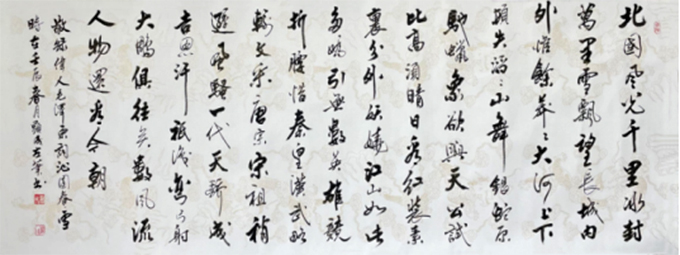 北國風光千里冰封
萬里雪飄望長城內
外惟餘莽〻大河上下
頓失滔〻山舞銀蛇原
馳蠟象欲與天公試
比高須晴日看紅裝素
裹分外妖嬈江山如此
多嬌引無數英雄競
折腰惜秦皇漢武略
輸文采唐宗宋祖稍
遜風騷一代天驕成
吉思汗祇識彎弓射
大鵰俱往矣數風流
人物還看今朝
敬錄偉人毛澤東詞沁園春雪
時在壬辰春月